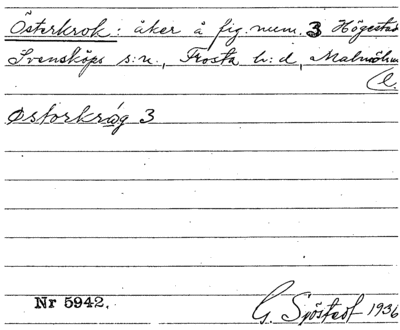 Österkrok: åker å fig. num. 3 Högestad
Svensköps s:n., Frosta h:d, Malmöhus
l.
østorkrág 3
Nr 5942.
G. Sjöstedt 1936